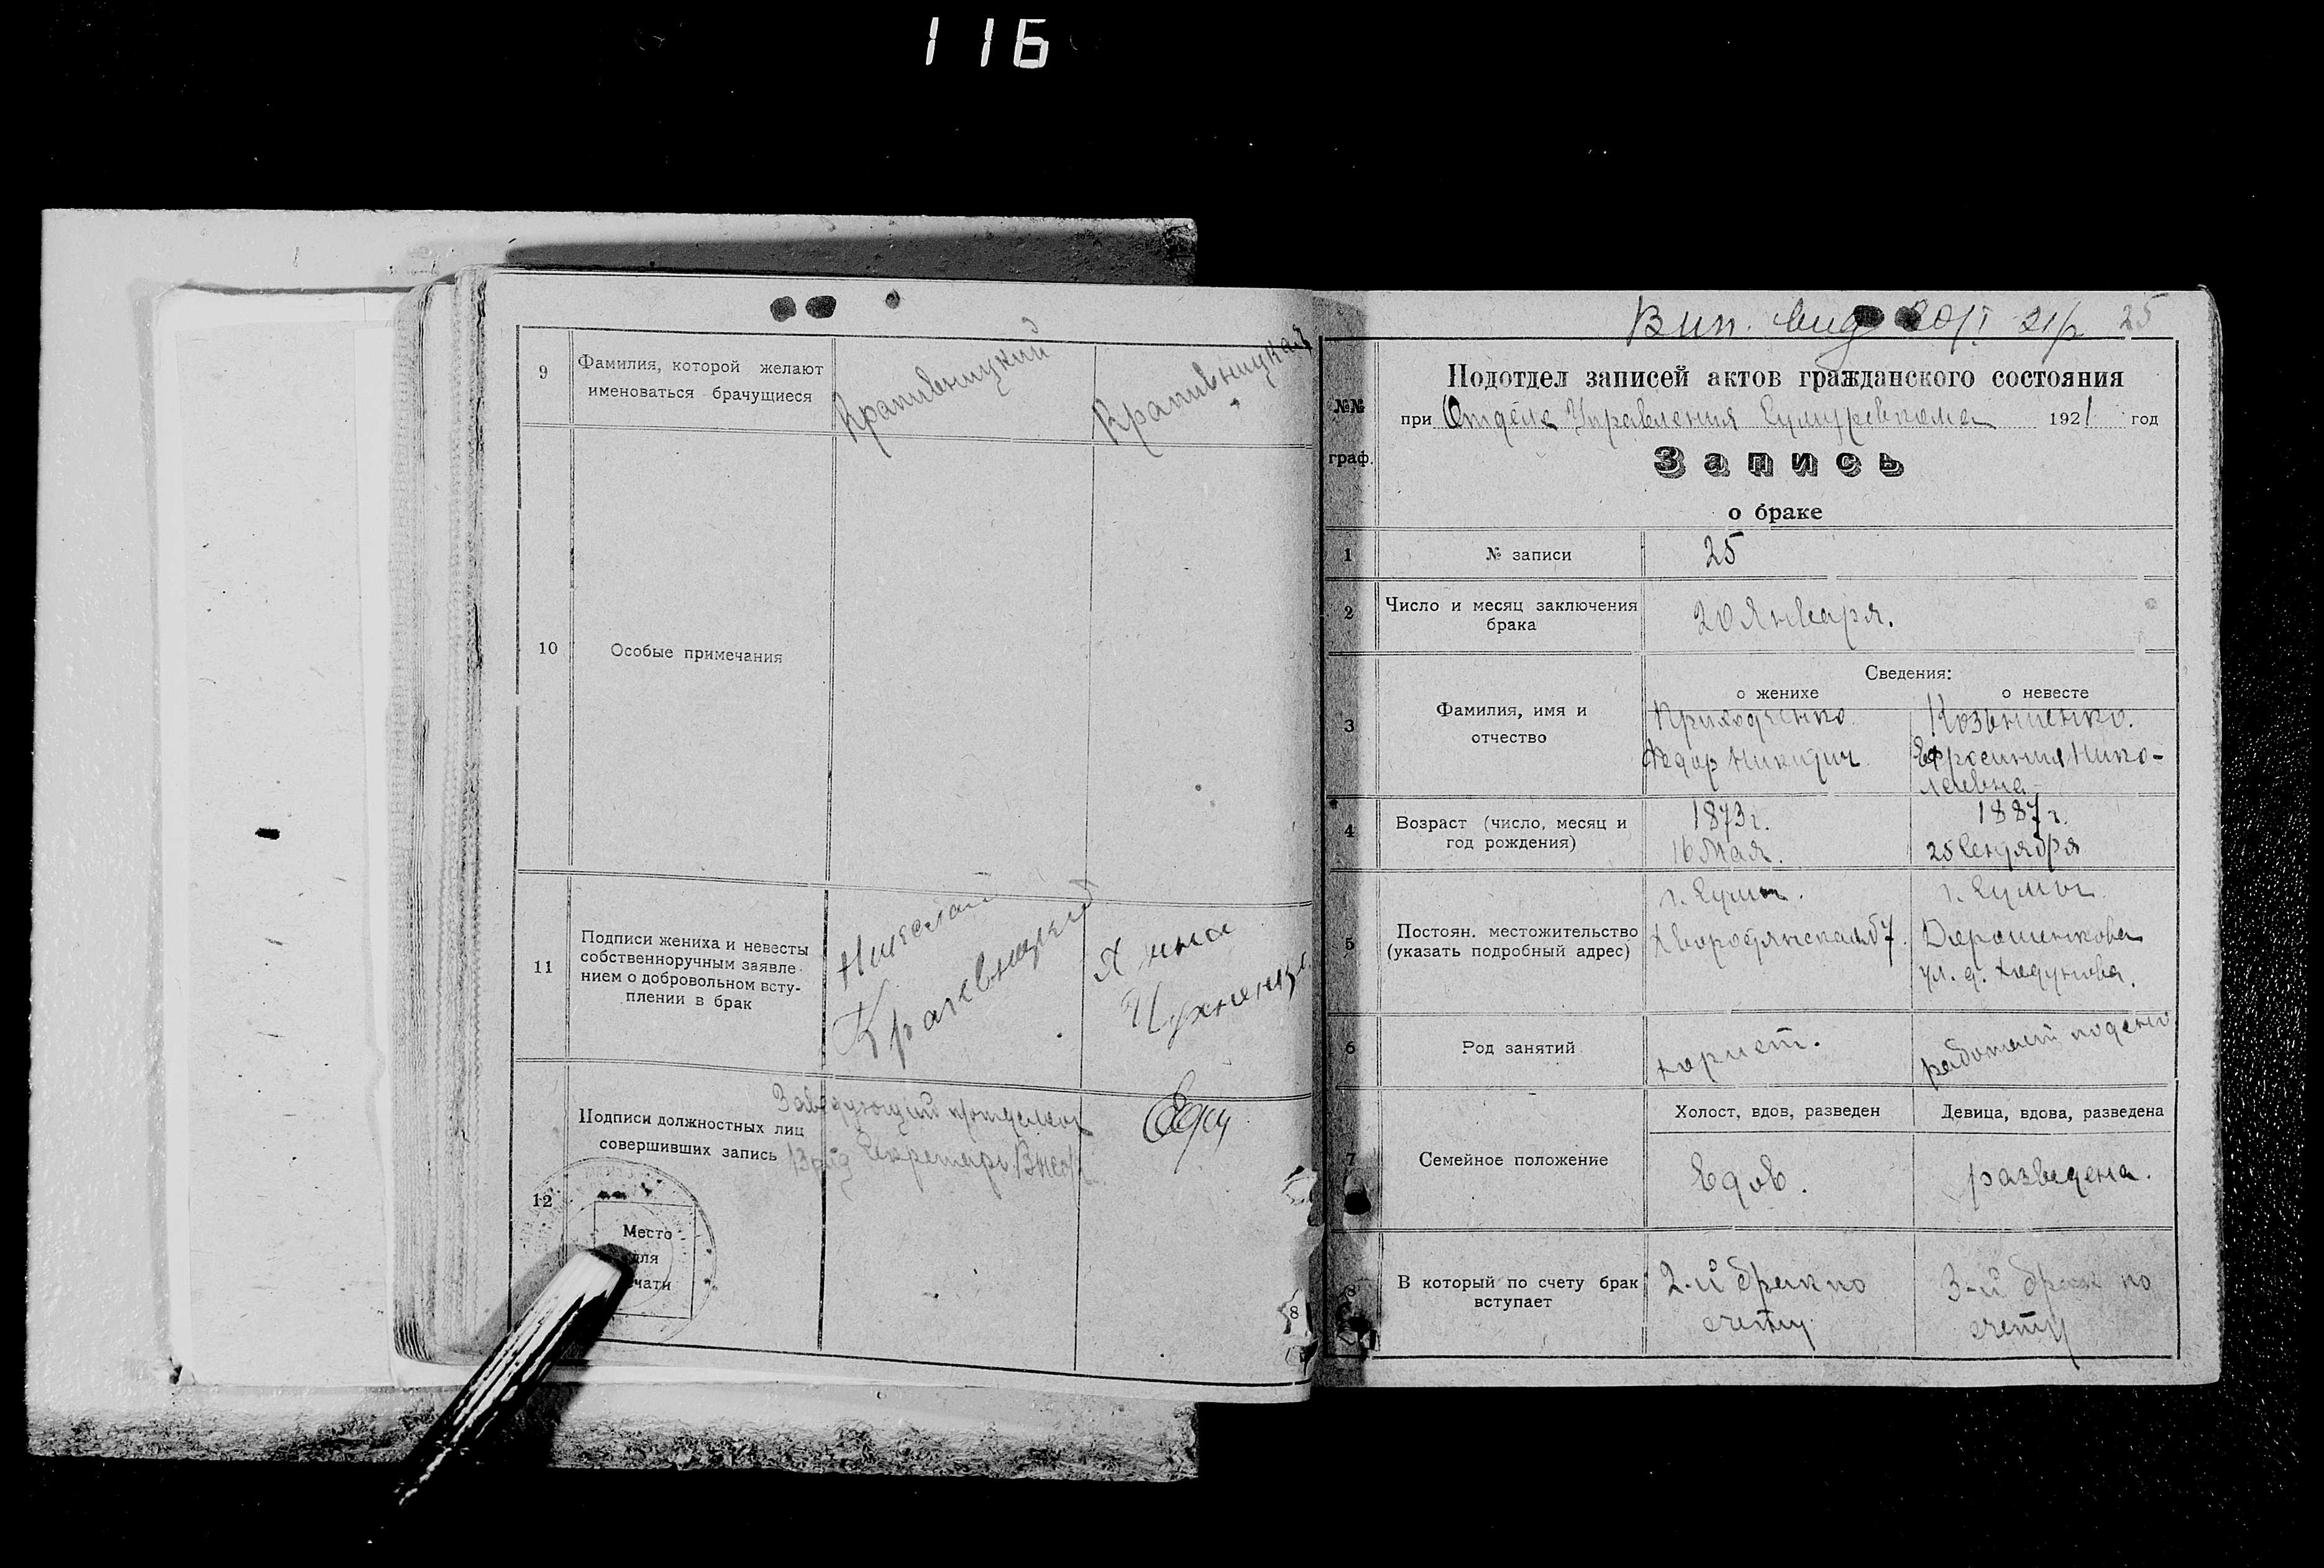 116
9
Фамилия, которой желают
именоваться брачущиеся
Крапивницкий
Крапивницкая
10
Особые примечания
11
Подписи жениха и невесты
собственноручным заявле-
нием о добровольном всту-
плении в брак
Николай
Анна
12
Подписи должностных лиц
совершивших запись
Заведующий
Секретарь
Место
для
чати
8
Вип. 20/I 21р 25
№№
граф.
Подотдел записей актов гражданского состояния
при Отделе Управления Сумуревкома 1921 год
Запись
о браке
1
№ записи
25
2
Число и месяц заключения
брака
20 Января.
Сведения:
о женихе
о невесте
3
Фамилия, имя и
отчество
Приходченко
Федор Никитич
Ефросиния Нико-
лаевна
4
Возраст (число, месяц и
год рождения)
1873г.
16 Мая.
1887г.
25 Сентября
5
Постоян. местожительство
(указать подробный адрес)
г. Сумы.
Дворянская
г. Сумы
ул. д.
6
Род занятий
юрист.
работает поденно
7
Семейное положение
Холост, вдов, разведен
Девица, вдова, разведена
вдов.
разведена.
8
В который по счету брак
вступает
2-й брак по
счету
3-й брак по
счету